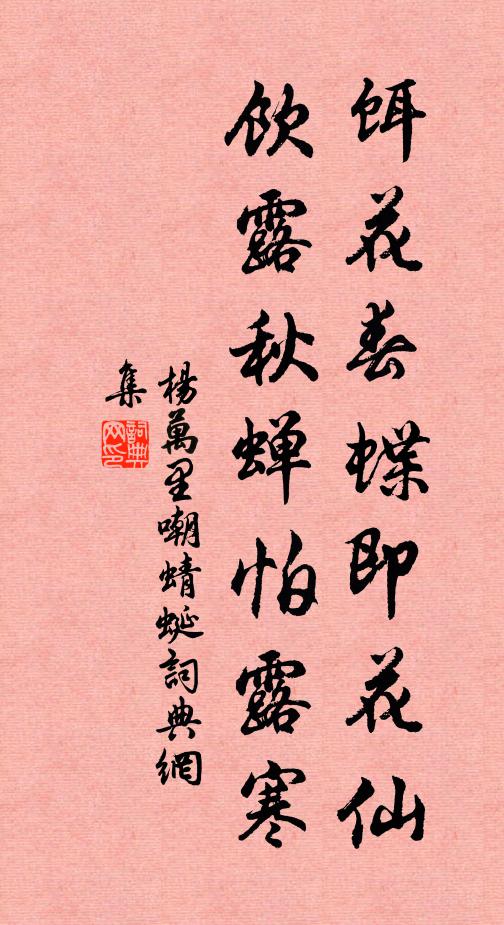 饵花春蝶即花仙
飲露秋蝉怕露寒
楊萬里嘲蜻蜓詞典網
集
詞典网印